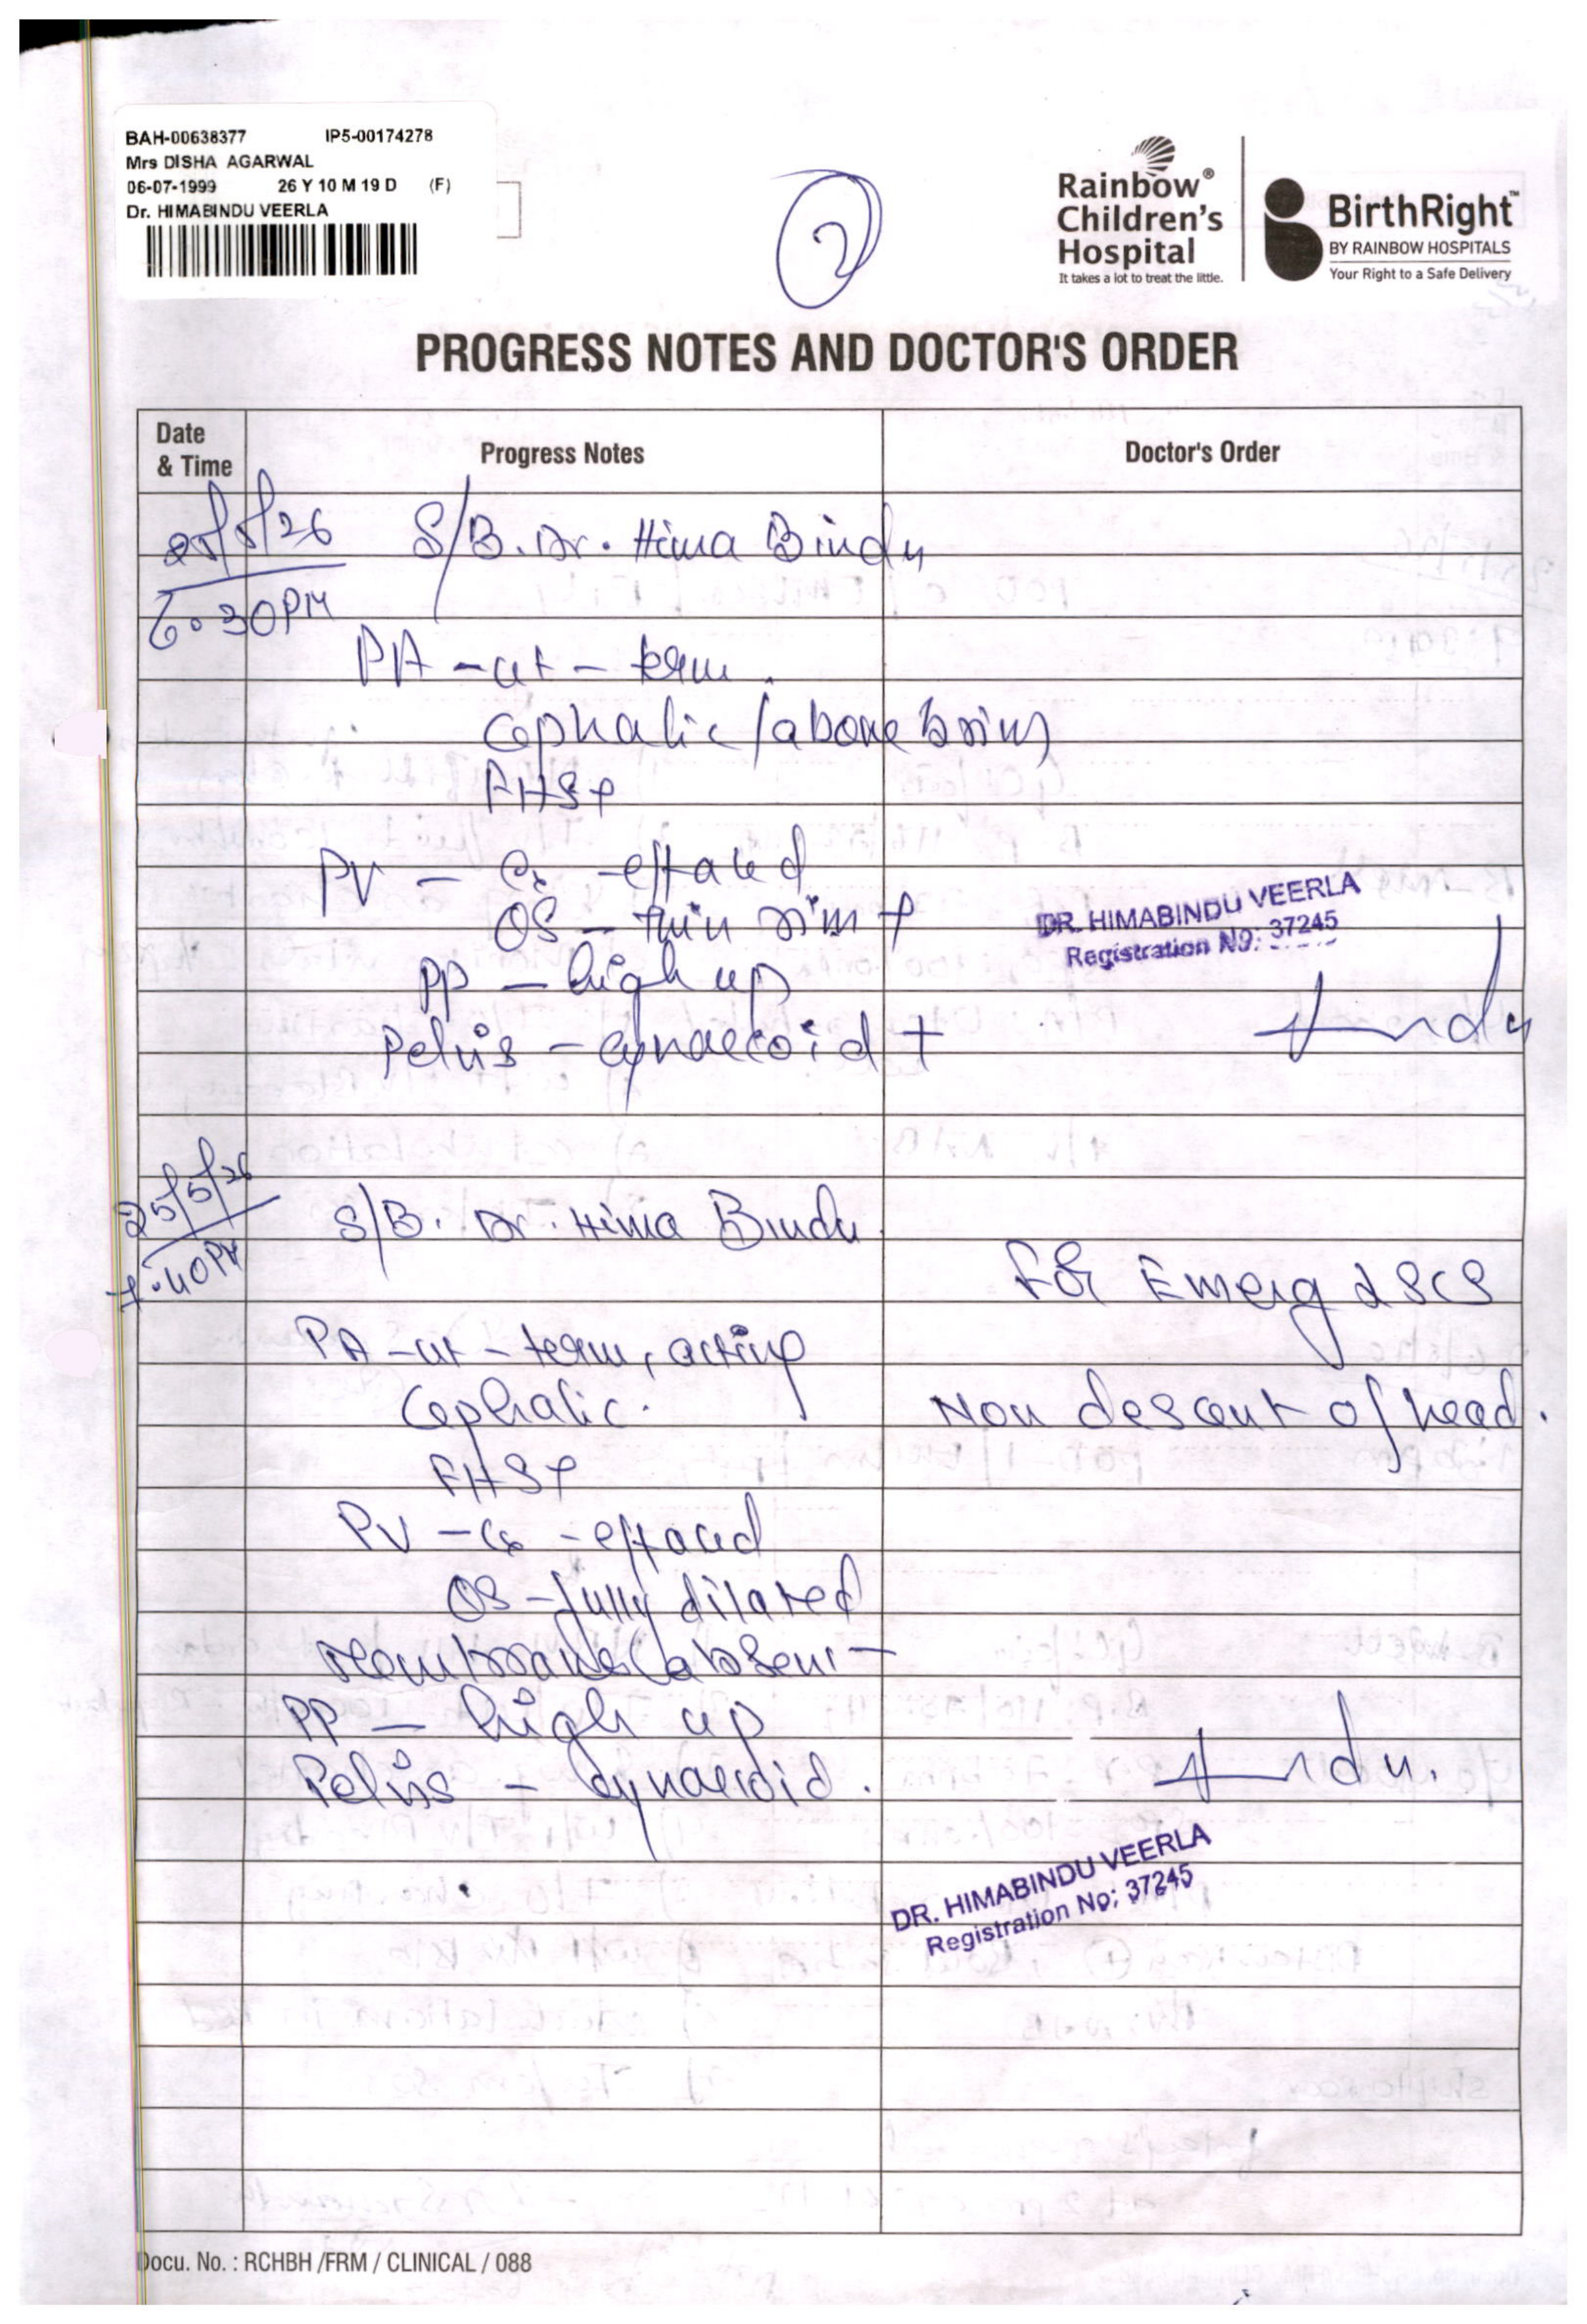 BAH-00638377 IP5-00174278
Mrs DISHA AGARWAL
06-07-1999 26 Y 10 M 19 D (F)
Dr. HIMABINDU VEERLA
2
Rainbow®
Children's
Hospital
It takes a lot to treat the little.
BirthRight™
BY RAINBOW HOSPITALS
Your Right to a Safe Delivery
PROGRESS NOTES AND DOCTOR'S ORDER
Date & Time Progress Notes Doctor's Order
25/5/26 S/B. Dr. Hima Bindu
6:30PM
PA - ut - term.
Cephalic / above brim
FHS+
PV - Cx - effaced
OS - thin rim +
PP - high up
Pelvis - gynaecoid +
DR. HIMABINDU VEERLA
Registration No: 37245
25/5/26
7:40PM
S/B. Dr. Hima Bindu.
For Emerg LSCS
PA - ut - term, acting
Cephalic. Non descent of head.
FHS+
PV - Cx - effaced
OS - fully dilated
Membranes absent
PP - high up
Pelvis - Gynaecoid.
DR. HIMABINDU VEERLA
Registration No; 37245
Docu. No. : RCHBH /FRM / CLINICAL / 088